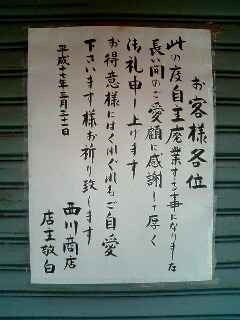 お客様各位
此の度自主廃業する事になりました
長い間のご愛顧に感謝して厚く
御礼申し上げます
お得意様にはくれぐれもご自愛
下さいます様お祈り致します
平成十七年三月二十一日
西川商店
店主敬白